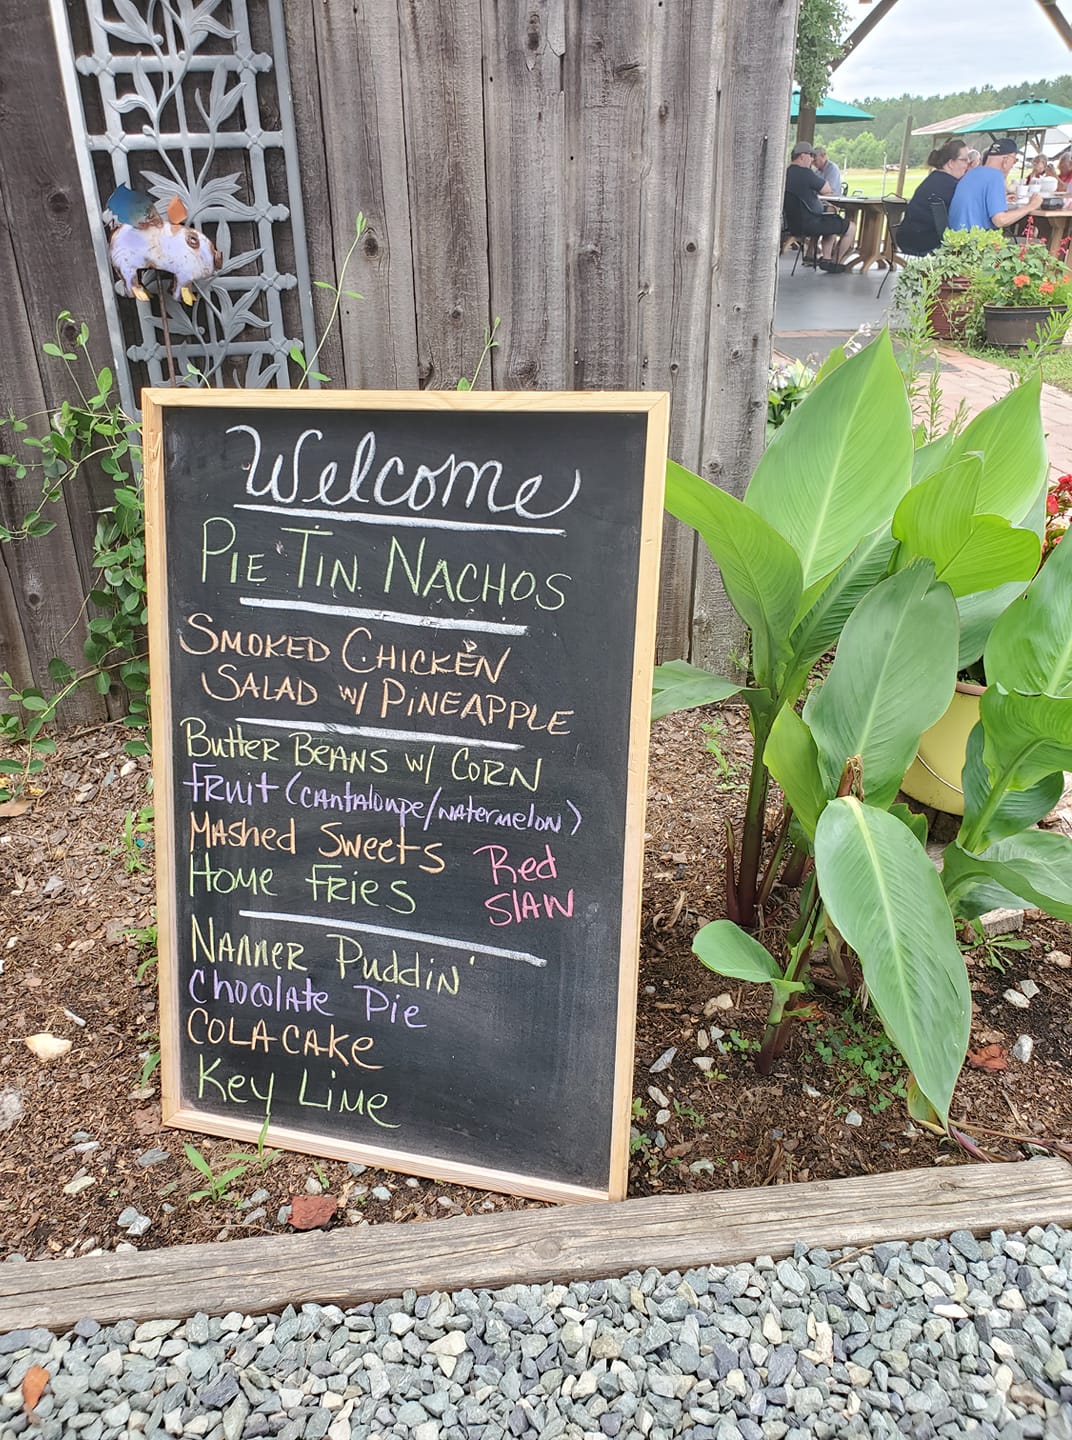 Welcome
PIE TIN NACHOS
SMOKED CHICKEN
SALAD w/ PINEAPPLE
Butter BEANS w/ CORN
FRuit (cantaloupe/watermelon)
Mashed Sweets
Home FRies
Red
SlAW
NANNER Puddin'
Chocolate Pie
COLA CAKe
Key Lime